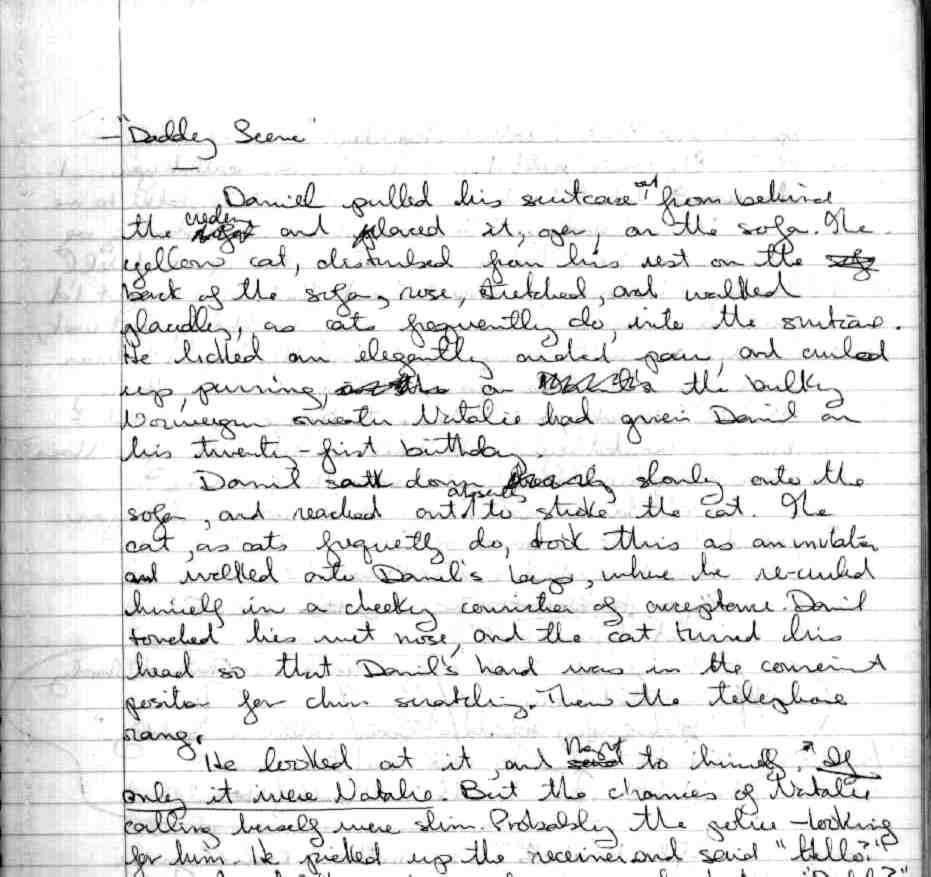 "Daddy Scene"
Daniel pulled his suitcase out from behind
the creden and placed it, open, on the sofa. The
yellow cat, disturbed from his rest on the
back of the sofa, rose, stretched, and walked
placidly, as cats frequently do, into the suitcase.
He licked an elegantly paw, and curled
up, purring, on the bulky
Norwegian sweater Natalie had given Daniel on
his twenty-first birthday.
Daniel sat down slowly onto the
sofa, and reached out absently to stroke the cat. The
cat, as cats frequently do, took this as an invitation
and walked onto Daniel's lap, where he re-curled
himself in a cheeky of acceptance. Daniel
touched his wet nose, and the cat turned his
head so that Daniel's hand was in the convenient
position for chin scratching. Then the telephone
rang.
He looked at it, and to himself. If
only it were Natalie. But the chances of Natalie
calling herself were slim. Probably the police - looking
for him. He picked up the receiver and said "Hello?"